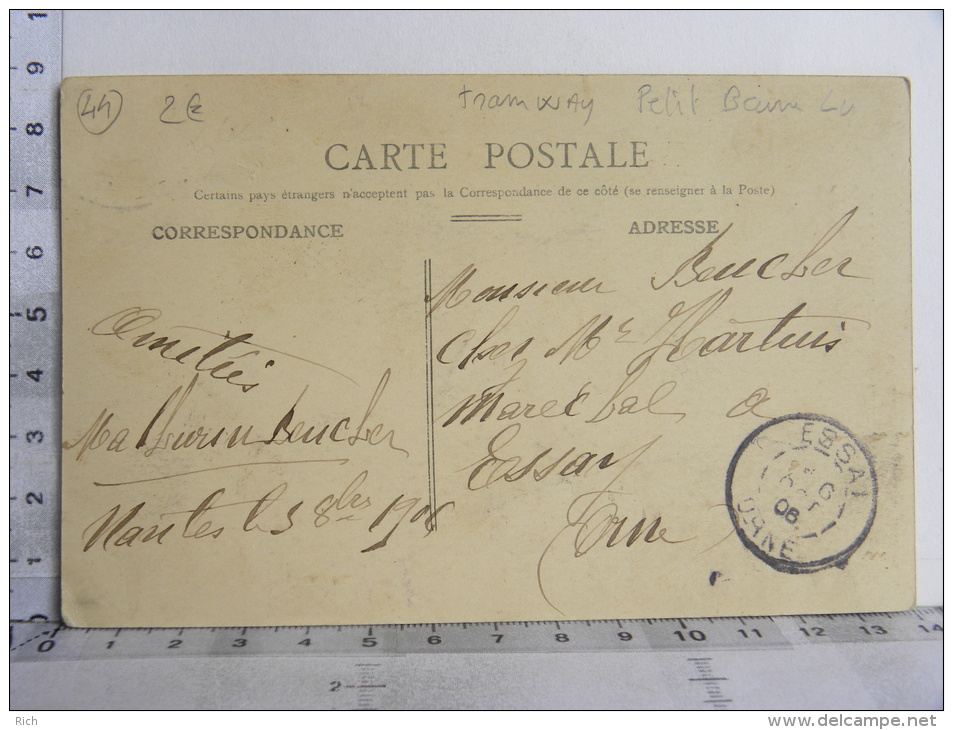 44 2€ tramway Petit Beurre Lu
CARTE POSTALE
Certains pays étrangers n'acceptent pas la Correspondance de ce côté (se renseigner à la Poste)
CORRESPONDANCE
ADRESSE
Amitiés
Mathurin Beucher
Nantes le 5 8bre 1906
Monsieur Beucher
chez Mr
maréchal a
Essay
Orne
ESSAI
6
OCT
06
ORNE
0 1 2 3 4 5 6 7 8 9 10 11 12 13 14
1 2 3 4 5 6 7 8 9 1
2
Rich
www.delcampe.net